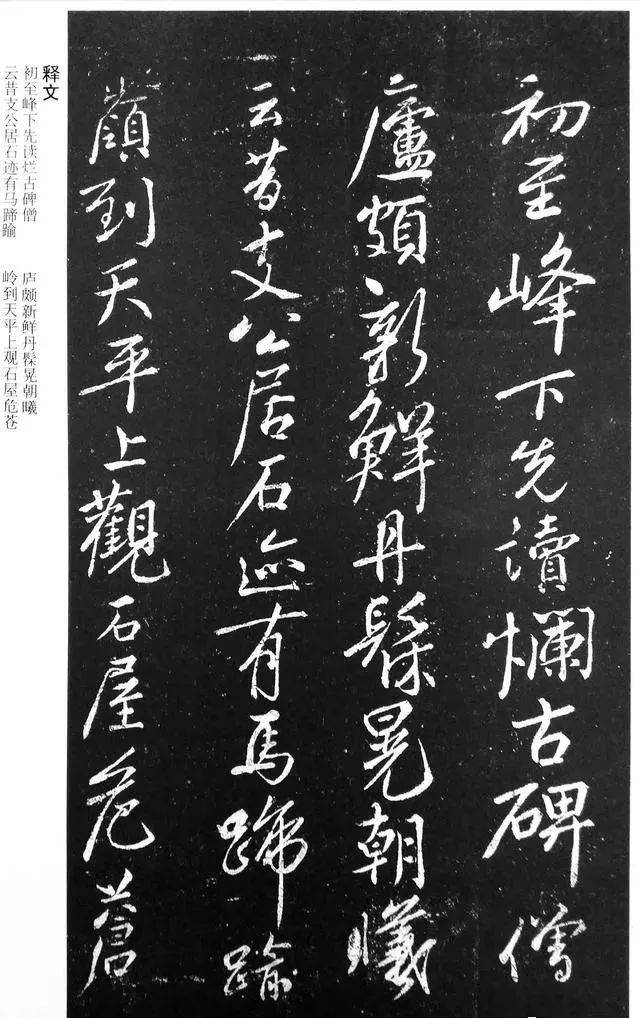 初至峰下先讀爛古碑僧
廬頗新鮮丹髹晃朝曦
云昔支公居石迹有馬蹄踰
嶺到天平上觀石屋危蒼
释文
初至峰下先读烂古碑僧
庐颇新鲜丹髹晃朝曦
云昔支公居石迹有马蹄踰
岭到天平上观石屋危苍